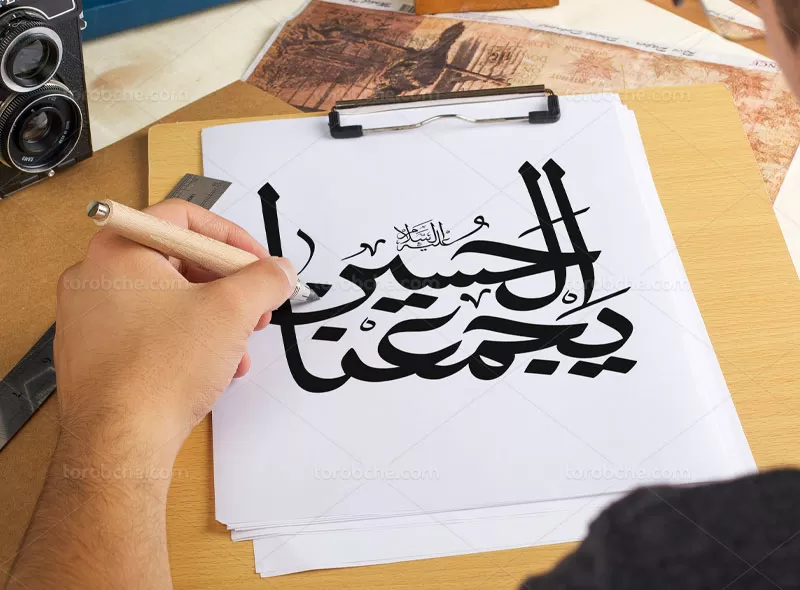 الحسين
عليه السلام
يجمعنا
torobche.com
torobche.com
torobche.com
torobche.com
torobche.com
torobche.com
torobche.com
torobche.com
torobche.com